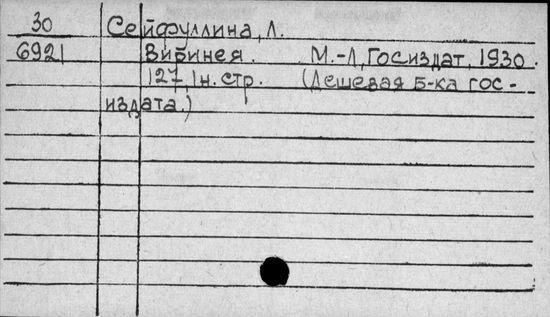 30 Сейфуллина, Л.
6921 Вибинея. М.-Л, Госиздат, 1930.
127, 1н. стр. (Дешевая Б-ка гос-
издата.)